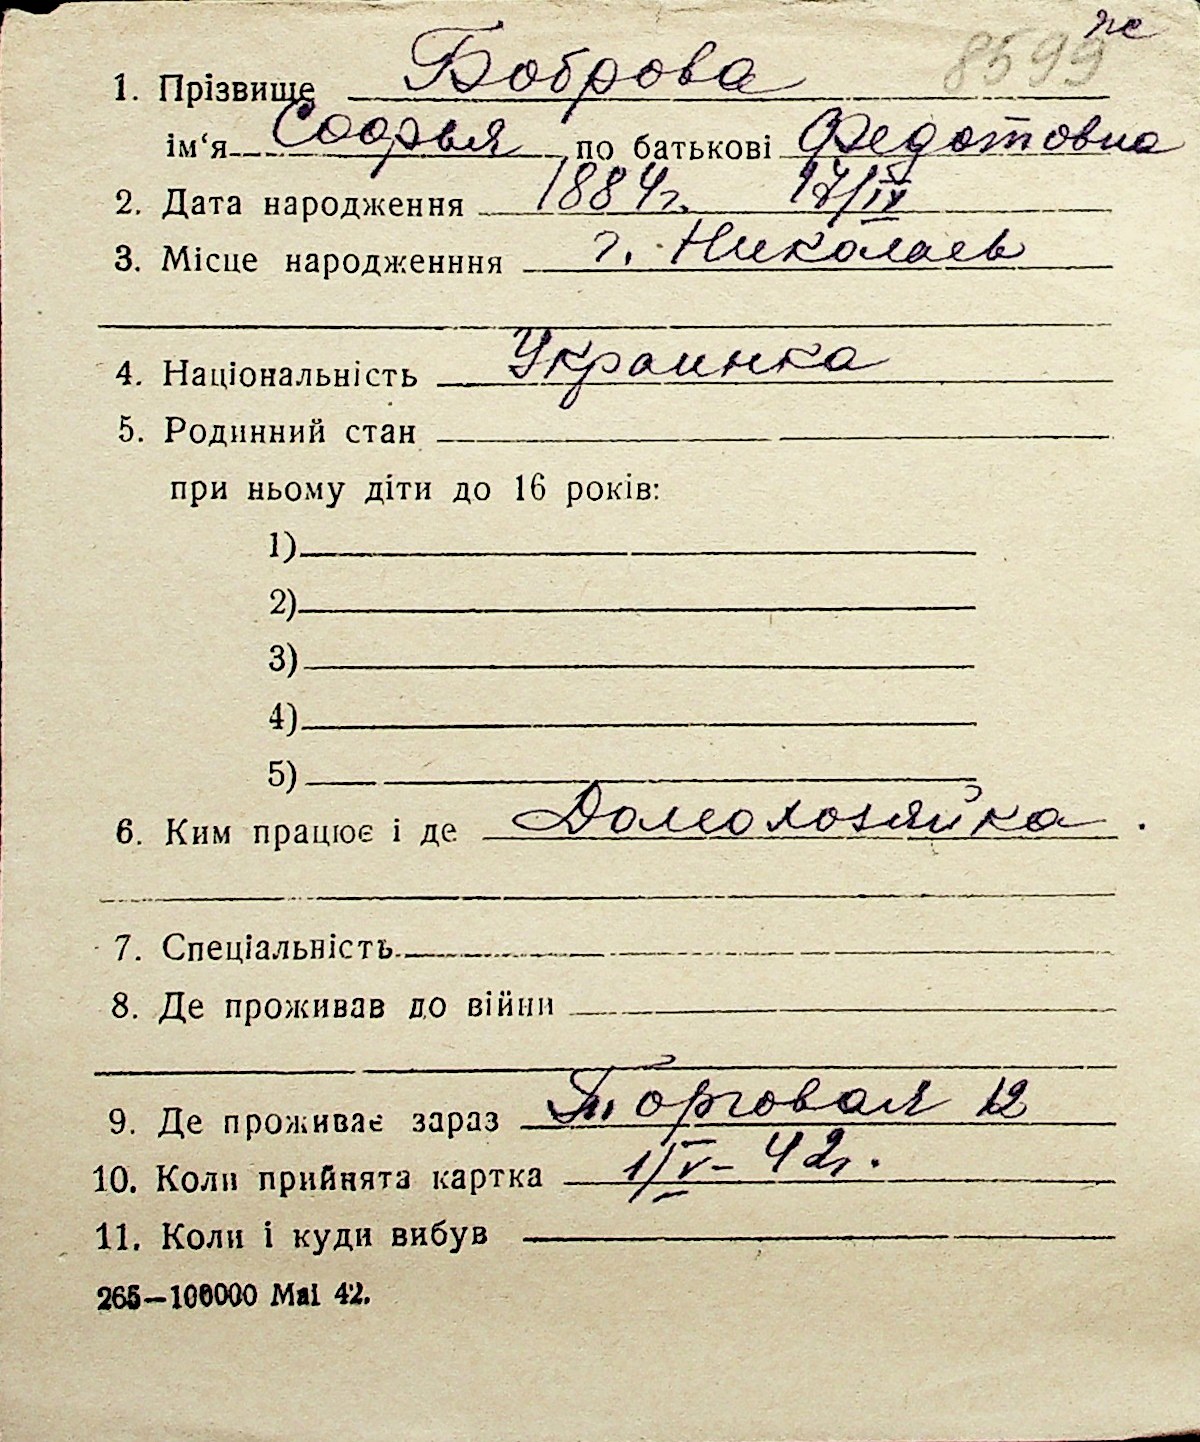 8599 ж
1. Прізвище Боброва
ім‘я Софья по батькові Федотовна
2. Дата народження 1884г. 17/IV
3. Місце народженння г. Николаев
4. Національність Украинка
5. Родинний стан
при ньому діти до 16 років:
1)
2)
3)
4)
5)
6. Ким працює і де Домохозяйка.
7. Спеціальність
8. Де проживав до війни
9. Де проживає зараз Торговая 12
10. Коли прийнята картка 1/V-42г.
11. Коли і куди вибув
265—100000 Mai 42.